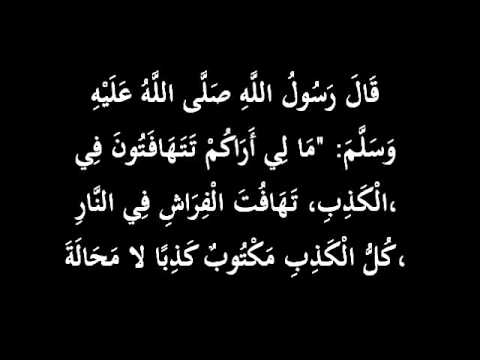 قَالَ رَسُولُ اللَّهِ صَلَّى اللَّهُ عَلَيْهِ
وَسَلَّمَ: "مَا لِي أَرَاكُمْ تَتَهَافَتُونَ فِي
،الْكَذِبِ، تَهَافُتَ الْفِرَاشِ فِي النَّارِ
،كُلُّ الْكَذِبِ مَكْتُوبٌ كَذِبًا لا مَحَالَةَ